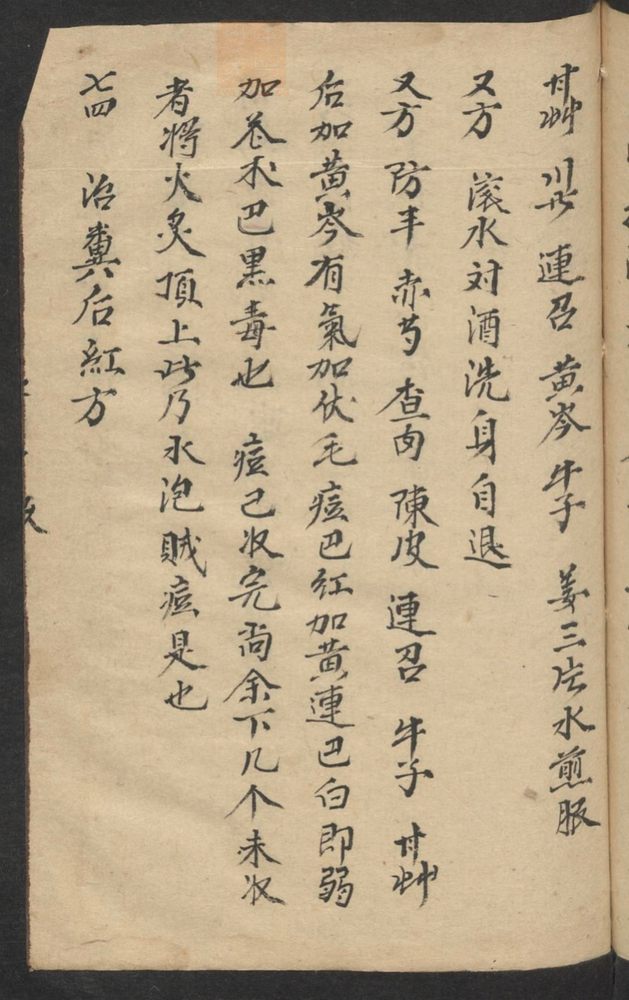 甘艸 川芎 連召 黄芩 牛子 姜三片水煎服
又方 滚水对酒洗身自退
又方 防丰 赤芍 查肉 陳皮 連召 牛子 甘艸
后加黄芩有氣加伏毛痘巴红加黄連巴白即弱
加苍术巴黑毒也 痘已收完尚余下几个未收
者将火炙頂上此乃水泡贼痘是也
七四 治糞后紅方